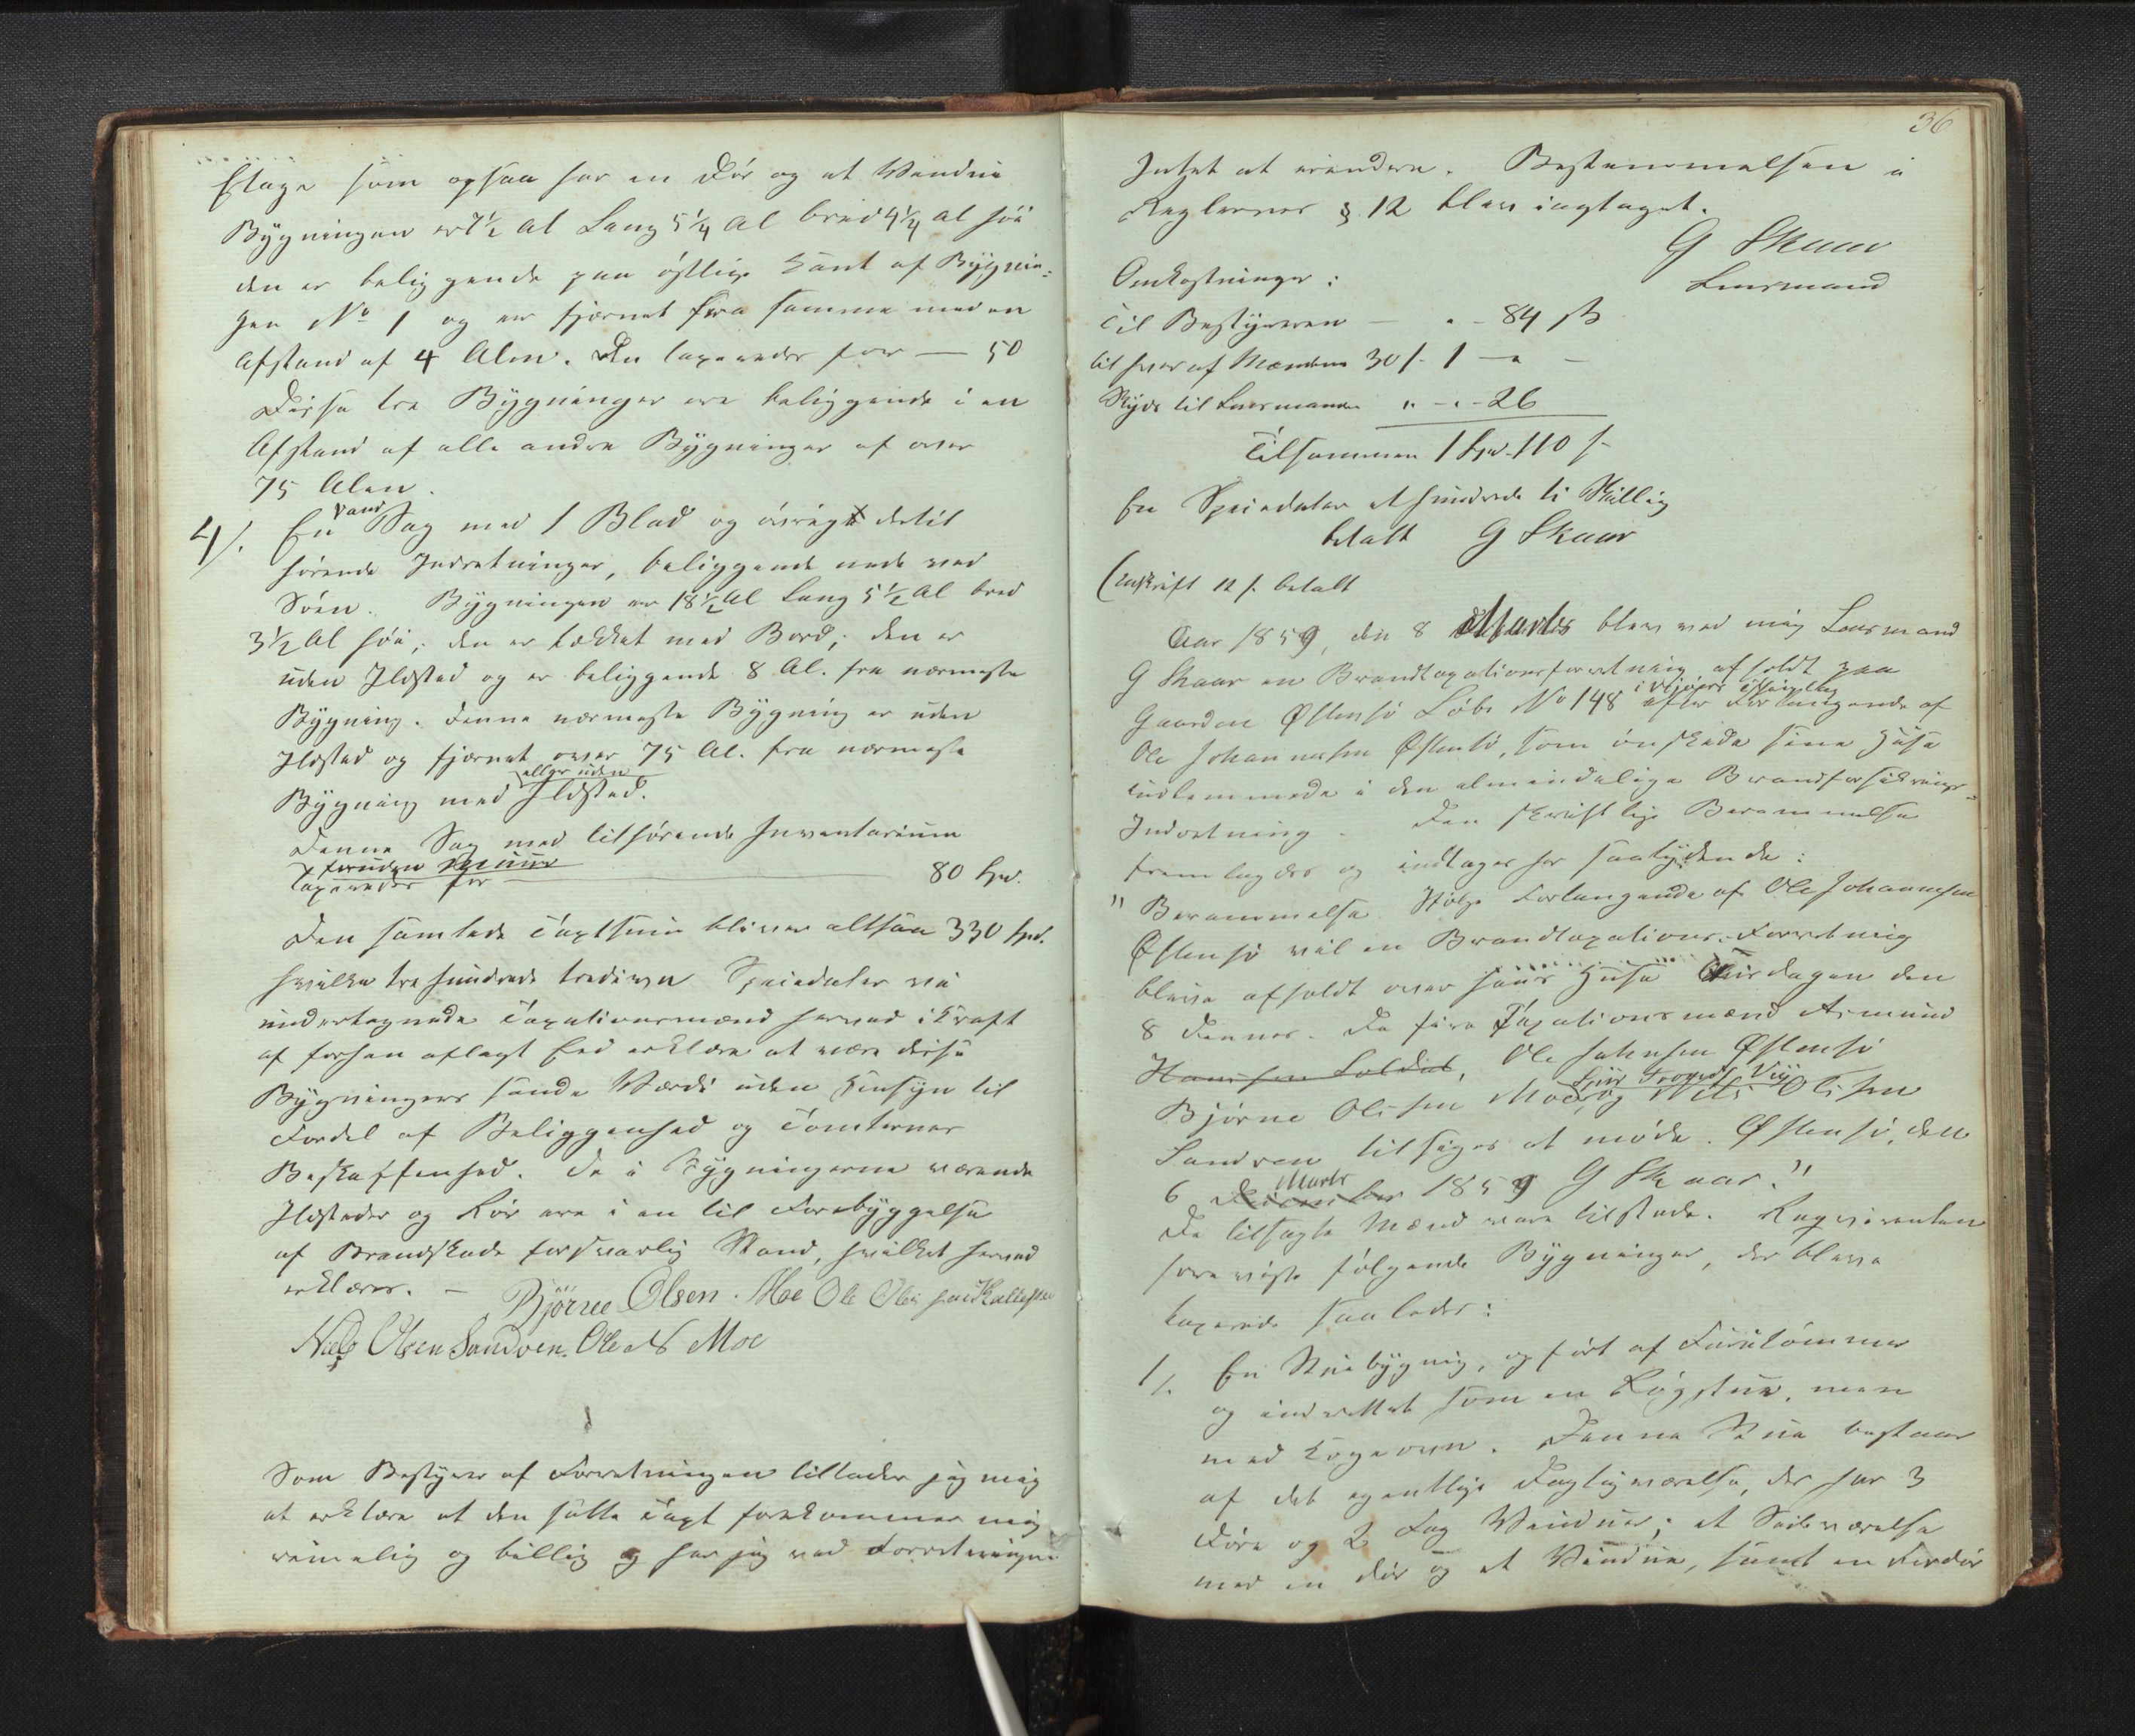 Etage som ogsaa har en Dør og et Vindue
Bygningen er 7½ Al Lang 5¼ Al bred 4¼ Al høi
den er beliggende paa østlige Kant af Bygnin-
gen No 1 og er fjernet fra samme med en
Afstand af 4 Alen. Den taxeredes for — 50
Disse tre Bygninger ere beliggende i en
Afstand af alle andre Bygninger af over
75 Alen.
4/. En Vand Sag med 1 Blad og øvrigt dertil
hørende Indretninger, beliggende nede ved
Søen. Bygningen er 18½ Al Lang 5½ Al bred
3½ Al høi; den er tækket med Bord; den er
uden Ildsted og er beliggende 8 Al. fra nærmeste
Bygning. Denne nærmeste Bygning er uden
Ildsted og fjernet over 75 Al. fra nærmeste
Bygning med eller uden Ildsted.
Denne Sag med tilhørende Inventarium
foruden Muur
taxeredes for — 80 Spd.
Den samlede Taxtsum bliver altsaa 330 Spd.
hvilke tre hundrede tredive Speciedaler vi
undertegnede Taxationsmænd herved i Kraft
af forhen aflagt Eed erklære at være disse
Bygningers sande Værdi uden Hensyn til
Fordel af Beliggenhed og Tomternes
Beskaffenhed. De i Bygningerne værende
Ildsteder og Rør ere i en til Forebyggelse
af Brandskade forsvarlig Stand, hvilket herved
erklæres. — Bjørne Olsen Moe Ole Olsen
Niels Olsen Sandven. Ole N Moe
Som Bestyrer af Forretningen tillader jeg mig
at erklære at den satte Taxt forekommer mig
rimelig og billig og har jeg ved Forretningen
36
Intet at erindre. Bestemmelsen i
Reglernes § 12 blev iagttaget.
G Skaar
Lensmand
Omkostninger:
Til Bestyreren — " - 84 ß
til hver af Mændene 30 ß. 1 — " —
Skyds til Lensmanden " - " - 26
Tilsammen 1 Spd. 110 ß
En Speciedaler et hundrede ti Skilling
betalt G Skaar
(Afskrift 12 ß. betalt
Aar 1859, den 8 Marts blev ved mig Lensmand
G Skaar en Brandtaxationsforretning afholdt paa
Gaarden Østensø Løbe No 148 i Vigøers Thinglag efter Forlangende af
Ole Johannessen Østensø, som ønskede sine Huse
indlemmede i den almindelige Brandforsikrings-
Indretning. Den skriftlige Berammelse
fremlagdes og indtages her saalydende:
" Berammelse. Ifølge Forlangende af Ole Johannessen
Østensø vil en Brandtaxations-Forretning
blive afholdt over hans Huse Tirsdagen den
8 dennes. De fire Taxationsmænd Asmund
Hansen Soldal, Ole Johnsen Østensø
Bjørne Olsen Moe, og Nils Olsen
Sandven tilsiges at møde. Østensø, den
6 December Marts 1859 G Skaar."
De tilsagte Mænd vare tilstede. Reqvirenten
foreviste følgende Bygninger, der bleve
taxerede saaledes:
1/. En Stuebygning, opført af Furutømmer
og indrettet som en Røgstue, men
med Kogeovn. Denne Stue bestaar
af det egentlige Dagligværelse, der har 3
Døre og 2 Fag Vinduer; et Sideværelse
med en Dør og et Vindue, samt en Fordør